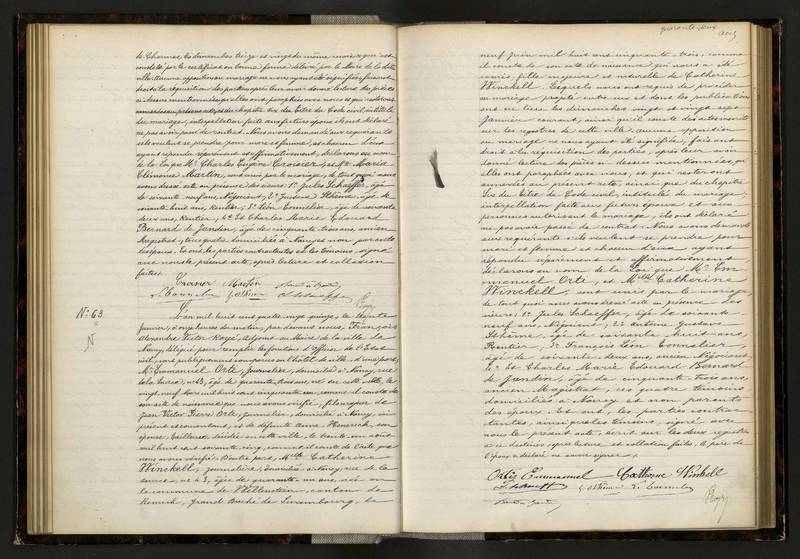 de Charmes les dimanches treize et vingt du même mois ainsi que
constaté par le certificat en bonne forme délivré par le Maire de la dite
ville. Aucune opposition au mariage ne nous ayant été signifiée, faisant
droit à la réquisition des parties, après leur avoir donné lecture des pièces
ci-dessus mentionnées qu'elles ont paraphées avec nous et qui resteront
annexées au présent acte, et du chapitre six du titre du Code civil intitulé
du mariage, interpellation faite aux futurs époux ils ont déclaré
ne pas avoir passé de contrat. Nous avons demandé aux requérants
s'ils veulent se prendre pour mari et femme, et chacun d'eux
ayant répondu séparément et affirmativement, déclarons au nom
de la Loi que Mr. Charles Eugène Crosier, et Mlle Maria
Clémence Martin, sont unis par le mariage, de tout quoi nous
avons dressé acte en présence des sieurs: 1° Jules Schaeffer, âgé
de soixante neuf ans, Négociant, 2° Gustave Ithème, âgé de
soixante huit ans, Rentier, 3° Léon Connelier, âgé de soixante
deux ans, Rentier, 4° et Charles Marie Edouard
Bernard de Jandin, âgé de cinquante trois ans, ancien
Magistrat, tous quatre domiciliés à Nancy et non parents
des époux. Et ont, les parties contractantes et les témoins, signé
avec nous le présent acte, après lecture et collation
faites.
Crosier Martin
N° 63.
L'an mil huit cent quatre vingt quinze, le trente
Janvier, à onze heures du matin, par devant nous, François
Alexandre Victor Royé, adjoint au Maire de la ville de
Nancy, délégué pour remplir les fonctions d'Officier de l'Etat
civil, sont publiquement comparus en l'hôtel de ville: d'une part,
Mr. Emmanuel Orti, Journalier, domicilié à Nancy, rue
de la Source, n° 3, âgé de quarante ans, né en cette ville, le
vingt neuf Mars mil huit cent cinquante cinq, comme il conste de
son acte de naissance que nous avons vérifié, fils majeur de
Jean Victor Pierre Orti, Journalier, domicilié à Nancy, ici
présent et consentant, et de défunte Anne Honorich, son
épouse, Tailleuse, décédée en cette ville, le trente un août
mil huit cent soixante cinq, comme il conste de l'acte que
nous avons vérifié. D'autre part, Mlle Catherine
Winckell, journalière, domiciliée à Nancy, rue de la
Source, n° 3, âgée de quarante un ans, née en
la commune de Wellenstein, canton de
Remich, Grand Duché de Luxembourg, le
quarante-deux
neuf Juin mil huit cent cinquante-trois, comme
il conste de son acte de naissance qui nous a été
remis, fille majeure et naturelle de Catherine
Winckell. Lesquels nous ont requis de procéder
au mariage projeté entre eux et dont les publications
ont eu lieu les dimanches vingt et vingt sept
Janvier courant, ainsi qu'il conste des actes inscrits
sur les registres de cette ville. Aucune opposition
au mariage ne nous ayant été signifiée, faisant
droit à la réquisition des parties, après leur avoir
donné lecture des pièces ci-dessus mentionnées, qu'
elles ont paraphées avec nous, et qui resteront
annexées au présent acte, ainsi que du chapitre
six du titre du Code civil, intitulé du mariage,
interpellation faite aux futurs époux et aux
personnes autorisant le mariage, ils ont déclaré
ne pas avoir passé de contrat. Nous avons demandé
aux requérants s'ils veulent se prendre pour
mari et femme et chacun d'eux ayant
répondu séparément et affirmativement
déclarons au nom de la Loi que Mr. Em
manuel Orti, et Mlle Catherine
Winckell sont unis par le mariage,
de tout quoi nous avons dressé acte en présence des
sieurs, 1° Jules Schaeffer, âgé de soixante
neuf ans, Négociant, 2° Antoine Gustave
Ithème, âgé de soixante huit ans,
Rentier, 3° François Léon Connelier,
âgé de soixante-deux ans, ancien Négociant,
4° et Charles Marie Edouard Bernard
de Jandin, âgé de cinquante-trois ans,
ancien Magistrat, les quatre témoins
domiciliés à Nancy et non parents
des époux. Et ont, les parties contrac
tantes, ainsi que les témoins, signé avec
nous le présent acte, écrit sur les deux registres
à ce destinés, après lecture et collation faites, le père de
l'époux a déclaré ne savoir signer.
Ortis Emmanuel Catherine Winkell